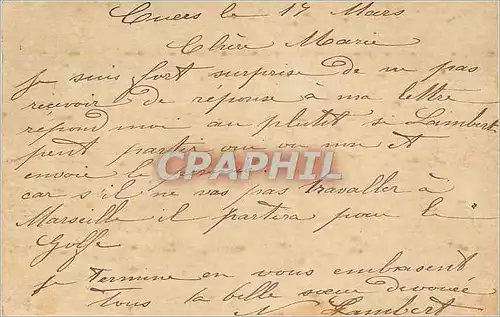 Cuers le 17 Mars
Chère Marie
je suis fort surprise de ne pas
recevoir de réponse à ma lettre
répond moi au plutêt si Lambert
peut partir oui ou non et
envoie le
CPARPHIL
car s'il ne vas pas travaller à
Marseille il partira pour le
Golfe
je Termine en vous embrasent
tous ta belle sœur devouée
N Lambert